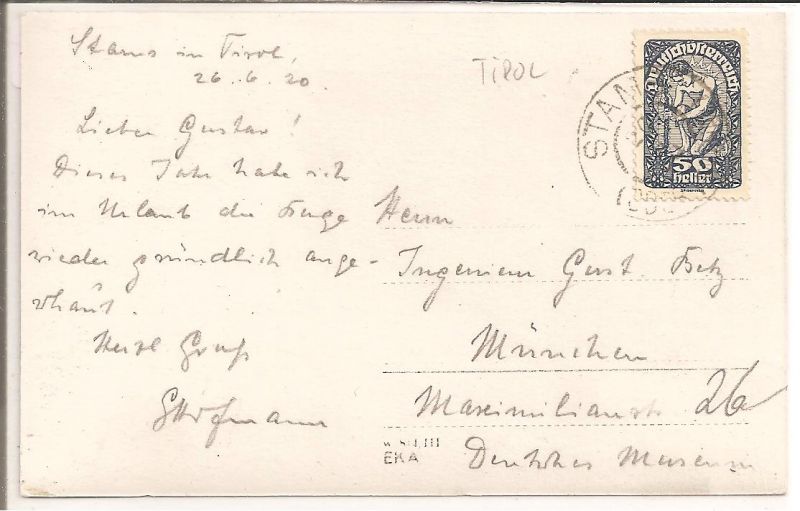 Stams in Tirol,
26.6.20.
TIROL
Deutschösterreich
50
heller
STAM
Lieber Gustav!
Dieses Jahr habe ich
im Urlaub die Berge
wieder gründlich ange-
schaut.
Herzl Gruß
EHofmann
Herrn
Ingenieur Gust. Betz
München
Maximilianstr 26
Deutsches Museum
EKA